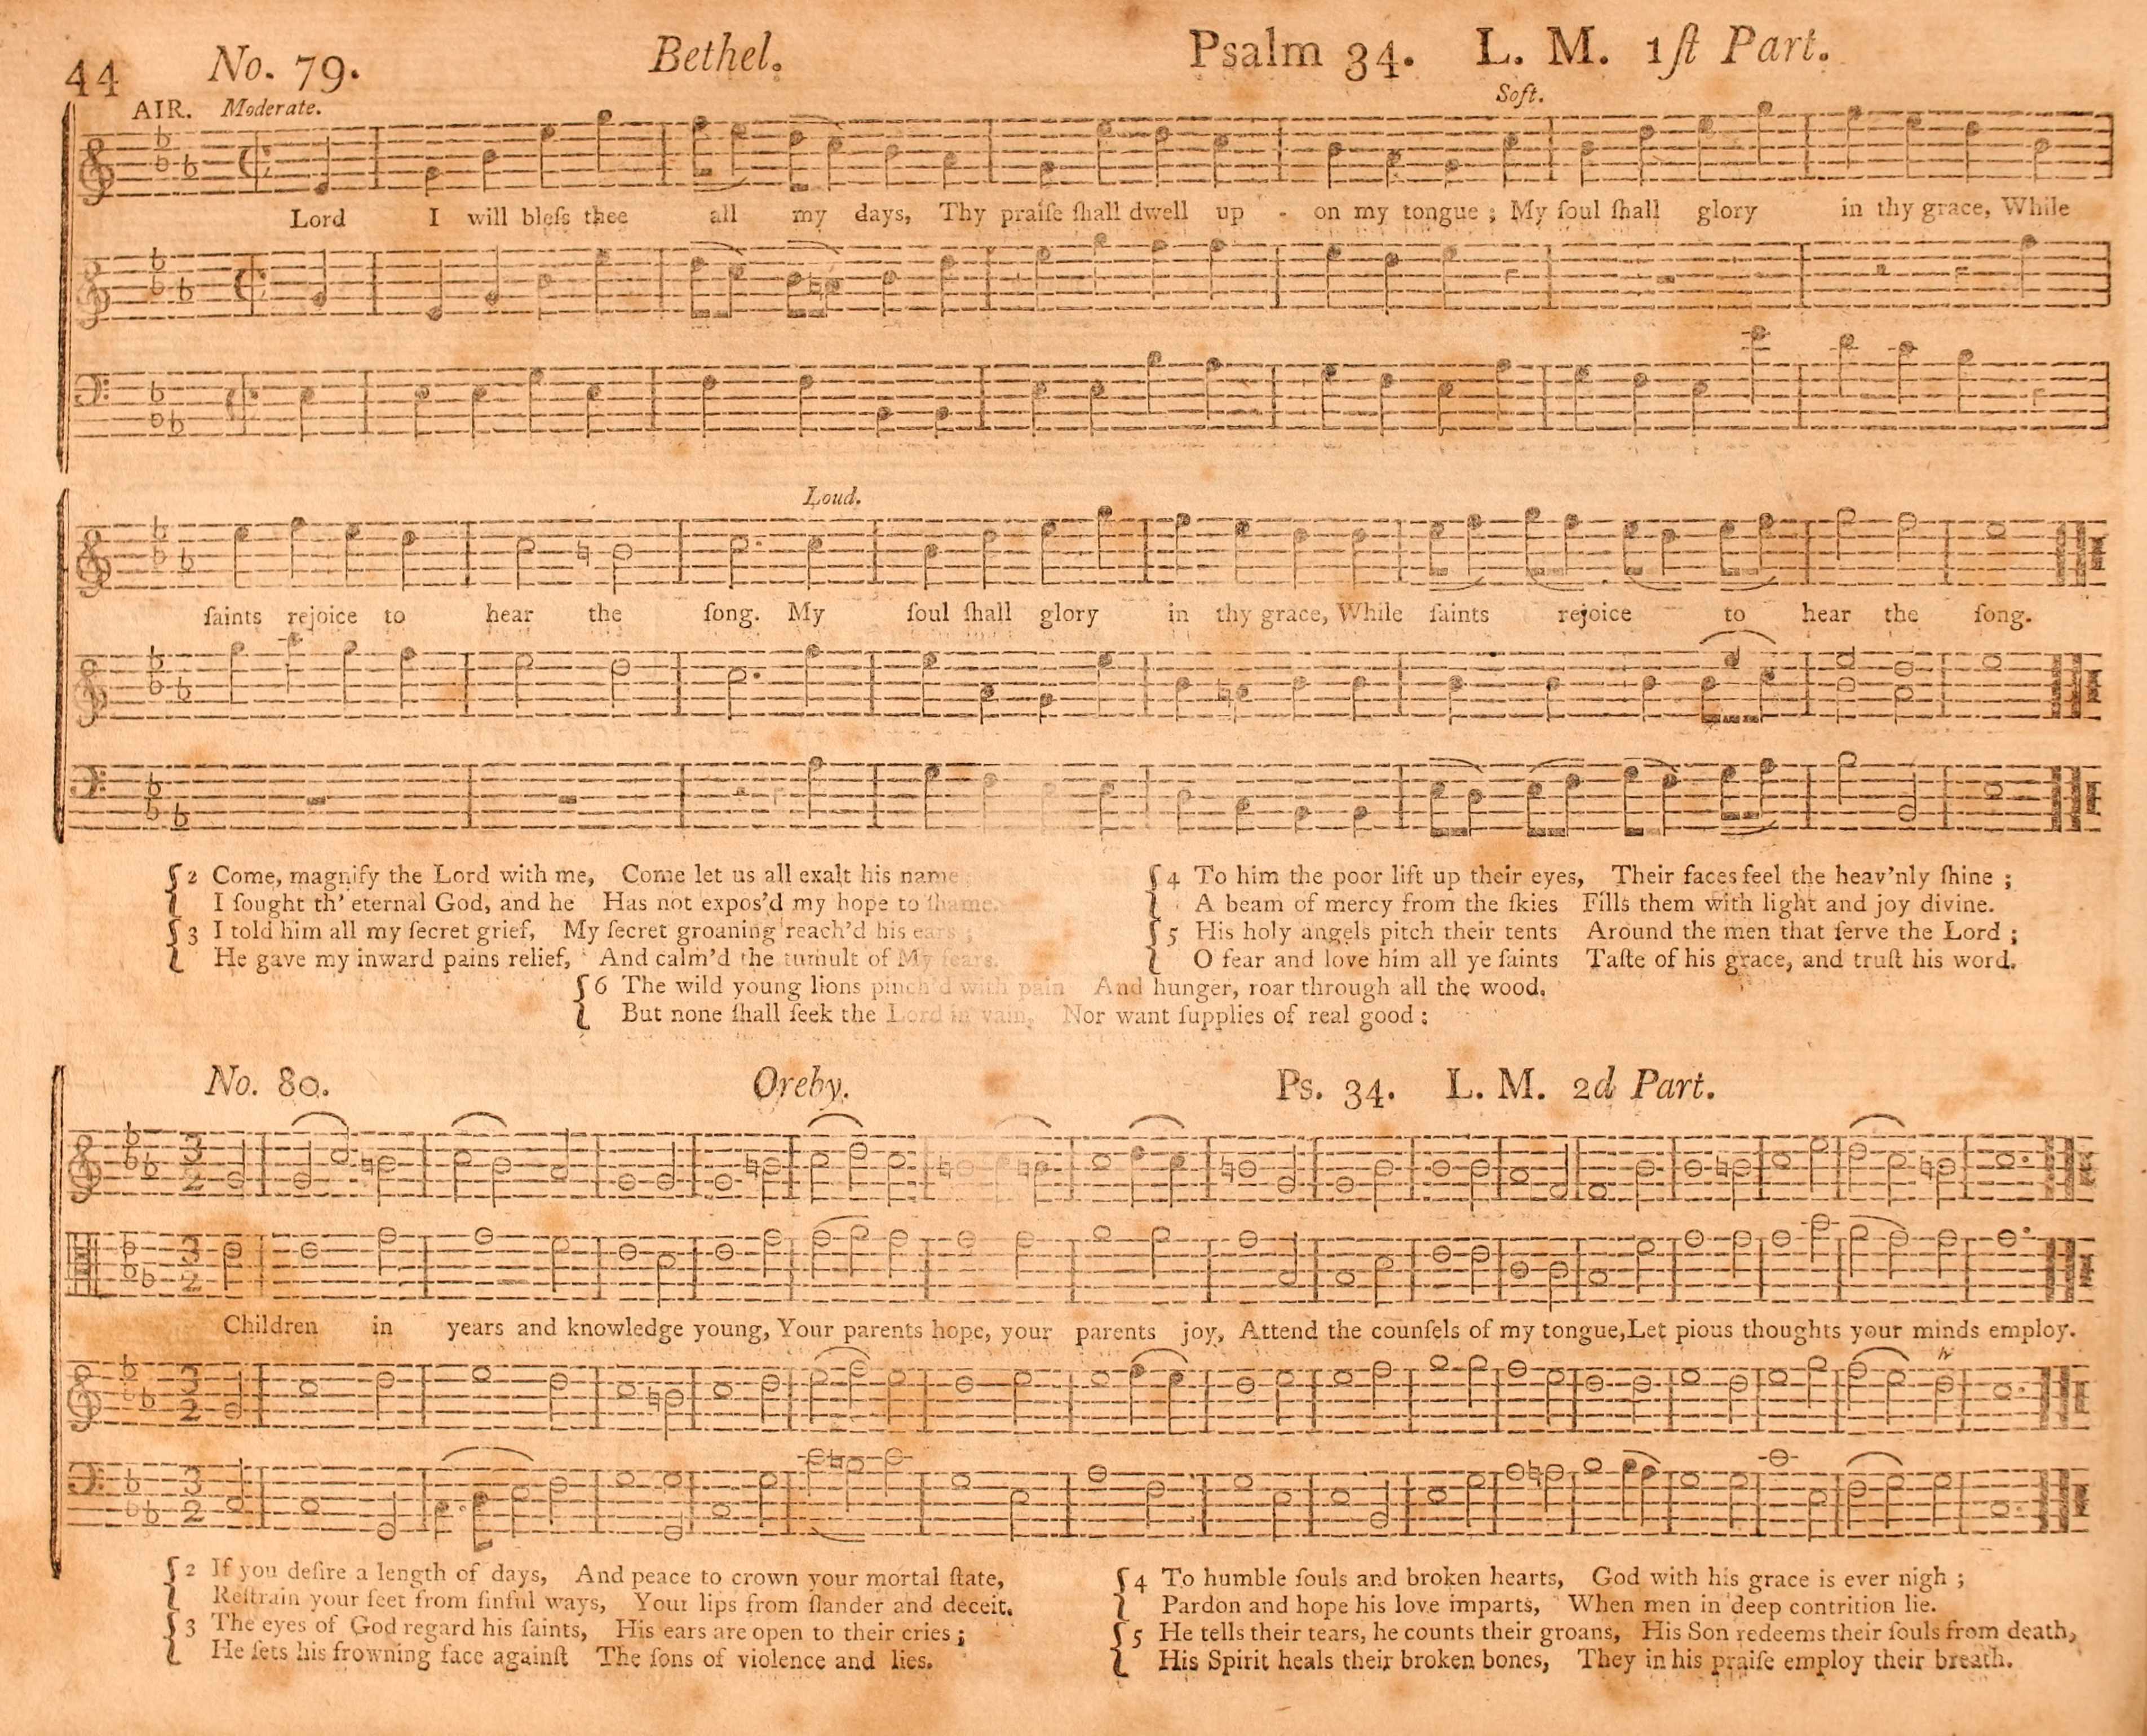 44 No. 79. Bethel. Psalm 34. L. M. 1ſt Part.
AIR. Moderate. Soft.
Lord I will bleſs thee all my days, Thy praiſe ſhall dwell up - on my tongue ; My ſoul ſhall glory in thy grace, While
Loud.
ſaints rejoice to hear the ſong. My ſoul ſhall glory in thy grace, While ſaints rejoice to hear the ſong.
2 Come, magnify the Lord with me, Come let us all exalt his name ;
I ſought th' eternal God, and he Has not expos'd my hope to ſhame.
3 I told him all my ſecret grief, My ſecret groaning reach'd his ears ;
He gave my inward pains relief, And calm'd the tumult of My fears.
4 To him the poor lift up their eyes, Their faces feel the heav'nly ſhine ;
A beam of mercy from the ſkies Fills them with light and joy divine.
5 His holy angels pitch their tents Around the men that ſerve the Lord ;
O fear and love him all ye ſaints Taſte of his grace, and truſt his word.
6 The wild young lions pinch'd with pain And hunger, roar through all the wood.
But none ſhall ſeek the Lord in vain, Nor want ſupplies of real good :
No. 80. Oreby. Ps. 34. L. M. 2d Part.
Children in years and knowledge young, Your parents hope, your parents joy, Attend the counſels of my tongue, Let pious thoughts your minds employ.
2 If you deſire a length of days, And peace to crown your mortal ſtate,
Reſtrain your feet from ſinful ways, Your lips from ſlander and deceit.
3 The eyes of God regard his ſaints, His ears are open to their cries ;
He ſets his frowning face againſt The ſons of violence and lies.
4 To humble ſouls and broken hearts, God with his grace is ever nigh ;
Pardon and hope his love imparts, When men in deep contrition lie.
5 He tells their tears, he counts their groans, His Son redeems their ſouls from death,
His Spirit heals their broken bones, They in his praiſe employ their breath.